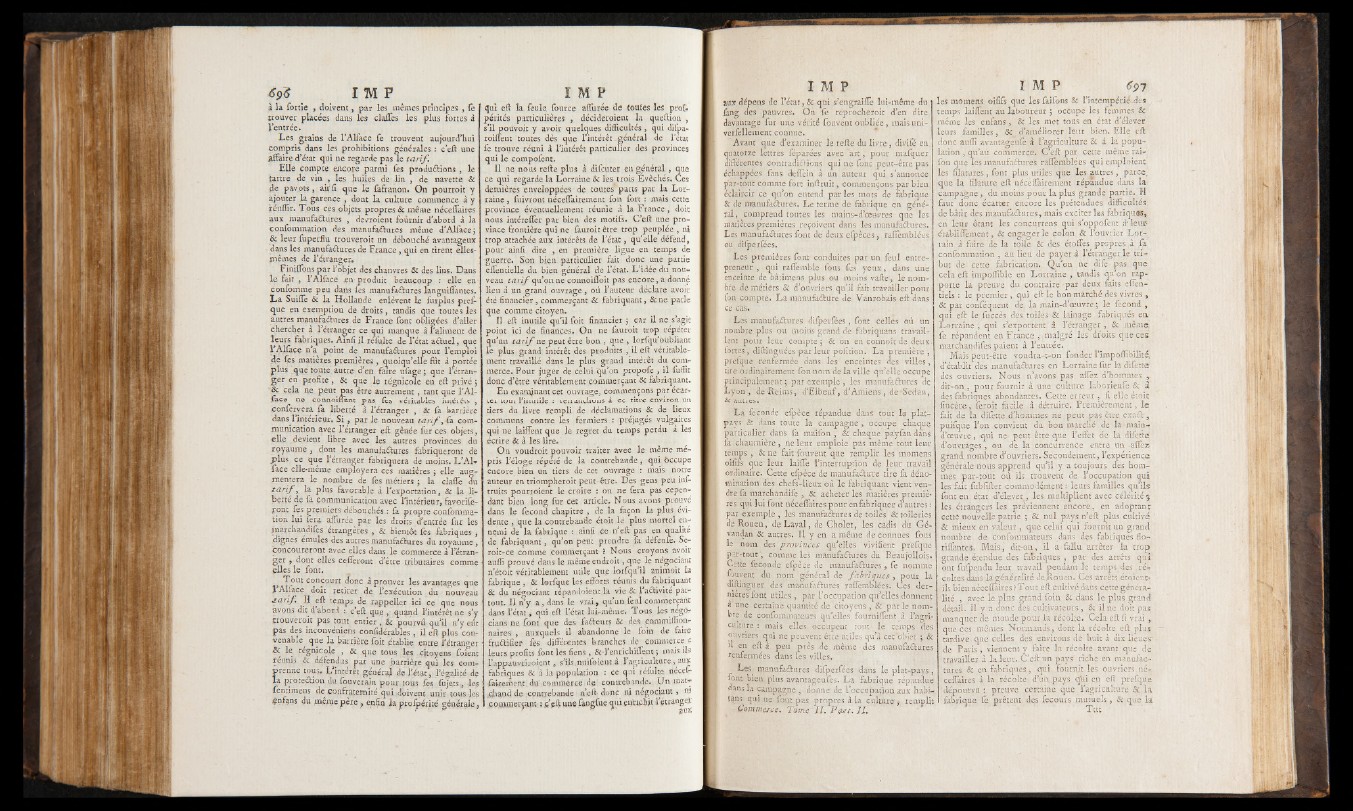 696 I M P
à la sortie , doivent, par les mêmes principes , se
trouver placées dans les classes les plus fortes à
l'entrée.
Les grains de l'Alsace se trouvent aujourd'hui
compris dans les prohibitions générales : c'est une
affaire d'état qui ne regarde pas le tarif.
Elle compte encore parmi ses productions , le
tartre de vin , les huiles de lin , de navette &
de pavots , ainsi que le safranon. On pourroit y
ajouter la garence , dont la culture commence à y
réussir. Tous ces objets propres & même nécessaires
aux manufactures , devroient fournir d'abord à la
consommation des manufactures même d'Alsace ;
& leur superflu trouveroit un débouché avantageux
dans les manufactures de France , qui en tirent elles-
mêmes de l'étranger.
Finissons par l'objet des chanvres & des lins. Dans
le fait , l'Alsace en produit beaucoup : elle en
consomme peu dans ses manufactures languissantes.
La Suisse & la Hollande enlèvent le surplus pres-
que en exemption de droits , tandis que toutes les
autres manufactures de France sont obligées d'aller
chercher à l'étranger ce qui manque à l'aliment de
leurs fabriques. Ainsi il résulte de l'état actuel , que
l'Alsace n'a point de manufactures pour l'emploi
de ses matières premières , quoiqu'elle fût à portée
plus que toute autre d'en faire usage ; que l'étran-
ger en profite , & que le régnicole en est privé ;
& cela ne peut pas être autrement , tant que l'Al-
face ne connoissant pas ses véritables intérêts ,
conservera sa liberté à l'étranger , & sa barrière
dans l'intérieur. Si , par le nouveau tarif , sa com-
munication avec l'étranger est gênée sur ces objets,
elle devient libre avec les autres provinces du
royaume , dont les manufactures fabriqueront de
plus ce que l'étranger fabriquera de moins. L'Al-
face elle-même employera ces matières ; elle aug-
mentera le nombre de ses métiers ; la classe du
tarif, la plus favorable à l'exportation , & la li-
berté de sa communication avec l'intérieur, favorise-
ront ses premiers débouchés : sa propre consomma-
tion lui sera assurée par les droits d'entrée sur les
marchandises étrangères , & bientôt ses fabriques ,
dignes émules des autres manufactures du royaume ,
concourreront avec elles dans le commerce à l'étran-
ger , dont elles cesseront d'être tributaires comme
elles le sont.
Tout concourt donc à prouver les avantages que
l'Alsace doit retirer de l'exécution du nouveau
tarif. Il est temps de rappeller ici ce que nous
avons dit d'abord : c'est que , quand l'intérêt ne s'y
trouveroit pas tout entier , & pourvu qu'il n'y eût
pas des inconvéniens considérables , il est plus con-
venable que la barrière soit établie entre l'étranger
& le régnicole , & que tous les citoyens soient
réunis & défendus par une barrière qui les com-
prenne tous. L'intérêt général de l'état, l'égalité de
la protection du souverain pour tous ses sujets, les
sentimens de confraternité qui doivent unir tous les
enfans du même père , enfin la prospérité générale ,
I M P
qui est la seule source assurée de toutes les prof-
pérités particulières , décideroient la question ,
s'il pouvoit y avoir quelques difficultés , qui dispa-
roissent toutes dès que l'intérêt général de l'état
se trouve réuni à l'intérêt particulier des provinces
qui le composent.
Il ne nous reste plus à discuter en général , que
ce qui regarde la Lorraine & les trois Evêchés. Ces
dernières enveloppées de toutes parts par la Lor-
raine , suivront nécessairement son sort : mais cette
province éventuellement réunie à la France , doit
nous intéresser par bien des motifs. C'est une pro-
vince frontière qui ne sauroit être trop peuplée , ni
trop attachée aux intérêts de l'état , qu'elle défend,
pour ainsi dire , en première ligne en temps de
guerre. Son bien particulier fait donc une partie
essentielle du bien général de l'état. L'idée du nou-
veau tarif qu'on ne connoissoit pas encore , a donné
lieu à un grand ouvrage , où l'auteur déclare avoir
été financier , commerçant & fabriquant , & ne parle
que comme citoyen.
Il est inutile qu'il soit financier ; car il ne s'agit
point ici de finances. On ne sauroit trop répéter
qu'un tarif ne peut être bon , que , lorsqu'oubliant
le plus grand intérêt des produits , il est véritable-
ment travaillé dans le plus grand intérêt du com-
merce. Pour juger de celui qu'on propose , il suffit
donc d'être véritablement commerçant & fabriquant.
En examinant cet ouvrage, commençons par écar-
ter tout l'inutile : retranchons à ce titre environ un
tiers du livre rempli de déclamations & de lieux
communs contre les fermiers : préjugés vulgaires
qui ne laissent que le regret du temps perdu à les
écrire & à les lire.
On voudroit pouvoir traiter avec le même mé-
pris l'éloge répété de la contrebande , qui occupe
encore bien un tiers de cet ouvrage : mais notre
auteur en triompheroit peut-être. Des gens peu inf-
truits pourroient le croire : on ne sera pas cepen-
dant bien long sur cet article. Nous avons prouvé
dans le second chapitre , de la façon la plus évi-
dente , que la contrebande étoit le plus mortel en-
nemi de la fabrique : ainsi ce n'est pas en qualité
de fabriquant , qu'on peut prendre sa défense. Se-
roit-ce comme commerçant ? Nous croyons avoir
aussi prouvé dans le même endroit , que le négociant
n'étoit véritablement utile que lorsqu'il animoit la
fabrique , & lorsque les efforts réunis du fabriquant
& du négociant répandoient la vie & l'activité par-
tout. Il n'y a , dans le vrai , qu'un seul commerçant
dans l'état , qui est l'état lui-même. Tous les négo-
cians ne sont que des facteurs & des commission-
naires , auxquels il abandonne le soin de faire
fructifier les différentes branches de commerce :
leurs profits sont les siens , & l'enrichissent ; mais ils
l'appauvriroient , s'ils nuisoient à l'agriculture , aux
fabriques & à la population : ce qui résulte néces-
sairement du commerce de contrebande. Un mar-
chand de contrebande n'est donc ni négociant , ni
commerçant : c'est une sangsue qui enrichit l'étranger
aux
I M P
aux dépens de l'état, & qui s'engraisse lui-même du
sang des pauvres. On se reprocheroit d'en dire
davantage sur une vérité souvent oubliée , mais uni-
versellement connue.
Avant que d'examiner le reste du livre , divisé en
quatorze lettres séparées avec art , pour masquer
différentes contradictions qui ne sont peut-être pas
échappées sans dessein à un auteur qui s'annonce
par-tout comme fort instruit , commençons par bien
éclaircir ce qu'on entend par les mots de fabrique
& de manufactures. Le terme de fabrique en géné-
ral , comprend toutes les mains-d'œuvres que les
matières premières reçoivent dans les manufactures.
Les manufactures sont de deux espèces ; rassemblées
ou dispersées.
Les premières sont conduites par un seul entre-
preneur , qui rassemble sous ses yeux , dans une
enceinte de bâtimens plus ou moins vaste , le nom-
bre de métiers & d'ouvriers qu'il fait travailler pour
son compte. La manufacture de Vanrobais est dans
ce cas.
Les manufactures dispersées , sont celles où un
nombre plus ou moins grand de fabriquans travail-
lent pour leur compte ; & on en connoît de deux
sortes , distinguées par leur position. La première ,
presque renfermée dans les enceintes des villes ,
tire ordinairement son nom de la ville qu'elle occupe
principalement ; par exemple , les manufactures de
Lyon , de Reims , d'Elbeuf , d'Amiens , de Sedan,
& autres.
La seconde espèce répandue dans tout le plat-
pays & dans toute la campagne , occupe chaque
particulier dans sa maison , & chaque paysan dans
sa chaumière , ne leur emploie pas même tout leur
temps , & ne fait souvent que remplir les momens
oisifs que leur laisse l'interruption de leur travail
ordinaire. Cette espèce de manufacture tire sa déno-
mination des chefs-lieux où le fabriquant vient ven-
dre sa marchandise , & acheter les matières premiè-
res qui lui sont nécessaires pour en fabriquer d'autres :
par exemple , les manufactures de toiles & toileries
de Rouen, de Laval , de Cholet, les cadis du Gé-
vaudan & autres. Il y en a même de connues sous
le nom des provinces qu'elles vivifient presque
par-tout , comme les manufactures du Beaujollois.
Cette seconde espèce de manufactures , se nomme
souvent du nom général de fabriques , pour la
distinguer des manufactures rassemblées. Ces der-
nières sont utiles , par l'occupation qu'elles donnent
à une certaine quantité de citoyens , & par le nom-
bre de consommateurs qu'elles fournissent à l'agri-
culture : mais elles occupent tout le temps des
ouvriers qui ne peuvent être utiles qu'à cet objet ; &
il en est à peu près de même des manufactures
renfermées dans les villes.
Les manufactures dispersées dans le plat-pays ,
sont bien plus avantageuses. La fabrique répandue
dans la campagne , donne de l'occupation aux habi-
tans qui ne sont pas propres à la culture , remplit
Commerce. Tome II. Part. II.
I M P 697
les momens oisifs que les saisons & l'intempérie des
temps laissent au laboureur ; occupe les femmes &
même les enfans , & les met tous en état d'élever
leurs familles , & d'améliorer leur bien. Elle est
donc aussi avantageuse à l'agriculture & à la popu-
lation , qu'au commerce. C'est par cette même rai-
son que les manufactures rassemblées qui emploient
les filatures , sont plus utiles que les autres , parce
que la filature est nécessairement répandue dans la
campagne , du moins pour la plus grande partie. Il
faut donc écarter encore les prétendues difficultés
de bâtir des manufactures , mais exciter les fabriques,
en leur ôtant les concurrens qui s'opposent à leur
établissement , & engager le colon & l'ouvrier Lor-
rain à faire de la toile & des étoffes propres à sa
consommation , au lieu de payer à l'étranger le tri-
but de cette fabrication. Qu'on ne dise pas que
cela est impossible en Lorraine , tandis qu'on rap-
porte la preuve du contraire par deux faits essen-
tiels : le premier , qui est le bon marché des vivres ,
& par conséquent de la main-d'œuvre ; le second ,
qui est le succès des toiles & lainage fabriqués en
Lorraine , qui s'exportent à l'étranger , & même
se répandent en France , malgré les droits que ces
marchandises paient à l'entrée.
Mais peut-être voudra-t-on fonder l'impossibilité
d'établir des manufactures en Lorraine sur la disette
des ouvriers. Nous n'avons pas assez d'hommes ,
dit-on , pour fournir à une culture laborieuse & à
des fabriques abondantes. Cette erreur , si elle étoit
sincère , seroit facile à détruire. Premièrement , le
fait de la disette d'hommes ne peut pas être exact ,
puisque l'on convient du bon marché de la main-
d'œuvre , qui ne peut être que l'effet de la disette
d'ouvrages , ou de la concurrence entre un assez
grand nombre d'ouvriers. Secondement, l'expérience
générale nous apprend qu'il y a toujours des hom-
mes par-tout où ils trouvent de l'occupation qui
les fait subsister commodément : leurs familles qu'ils
sont en état d'élever , les multiplient avec célérité ;
les étrangers les préviennent encore , en adoptant
cette nouvelle patrie ; & nul pays n'est plus cultivé
& mieux en valeur , que celui qui fournit un grand
nombre de consommateurs dans des fabriques flo-
rissantes. Mais , dit-on , il a fallu arrêter la trop
grande étendue des fabriques , par des arrêts qui
ont suspendu leur travail pendant le temps des ré-
coltes dans la généralité de Rouen. Ces arrêts étoient-
ils bien nécessaires ? Tout est cultivé dans cette généra-
lité , avec le plus grand soin & dans le plus grand
détail. Il y a donc des cultivateurs , & il ne doit pas
manquer de monde pour la récolte. Cela est si vrai ,
que ces mêmes Normands , dont la récolte est plus
tardive que celles des environs de huit à dix lieues
de Paris , viennent y faire la récolte avant que de
travailler à la leur. C'est un pays riche en manufac-
tures & en fabriques , qui fournit les ouvriers né-
cessaires à la récolte d'un pays qui en est presque
dépourvu : preuve certaine que l'agriculture & la
fabrique se prêtent des secours mutuels , & que la
Ttt